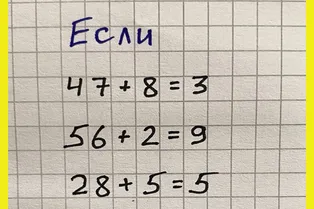 Если
47+8=3
56+2=9
28+5=5